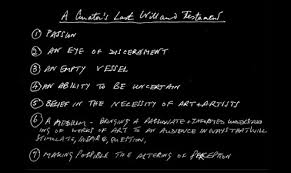 A Curator's Last Will and Testament
① PASSION
② AN EYE OF DISCERNMENT
③ AN EMPTY VESSEL
④ AN ABILITY TO BE UNCERTAIN
⑤ BELIEF IN THE NECESSITY OF ART + ARTISTS
⑥ A MEDIUM - BRINGING A PASSIONATE +
ING OF WORKS OF ART TO AN AUDIENCE IN WAYS THAT WILL
STIMULATE, INSPIRE, QUESTION,
⑦ MAKING POSSIBLE THE ALTERING OF PERCEPTION